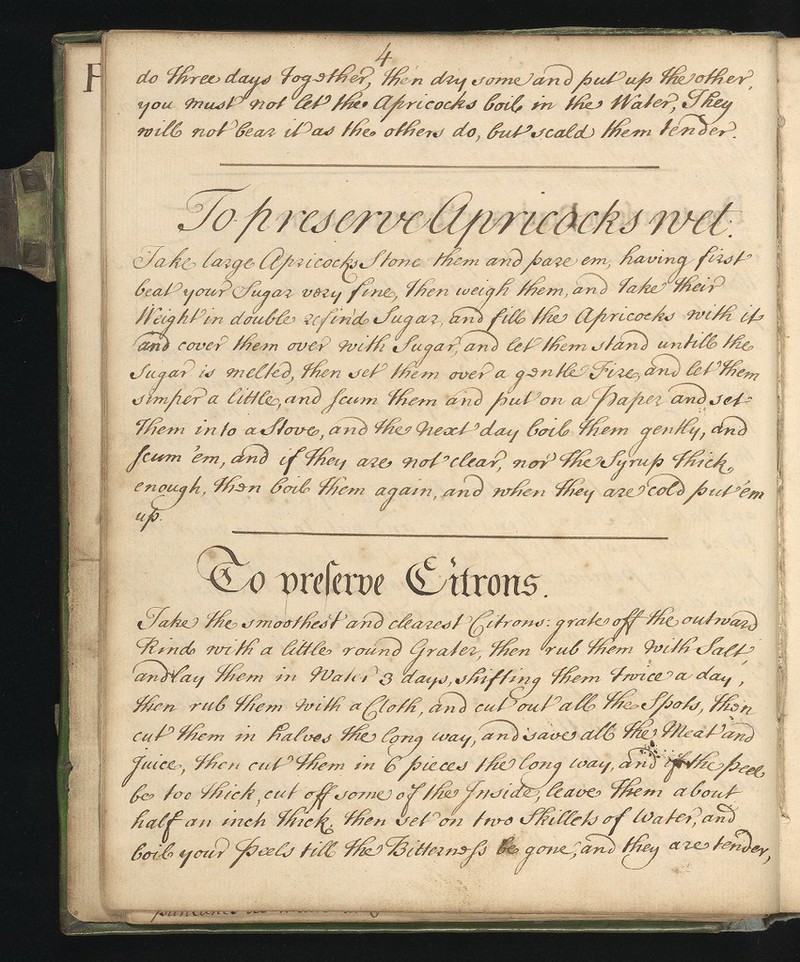 4
do three days together, then dry some and put up the other,
you must not let the Apricocks boil in the Water, They
will not bear it as the others do, but scald them tender.
To preserve Apricocks wet.
Take large Apricocks Stone them and pare em, having first
beat your Sugar very fine, then weigh them, and take their
Weight in double refin'd Sugar, and fill the Apricocks with it
and cover them over with Sugar, and let them stand untill the
Sugar is melted, then set them over a gentle Fire, and let them
simper a little, and scum them and put on a Paper and set
them into a Stove, and the next day boil them gently, and
scum 'em, and if they are not clear, nor the Syrup thick
enough, then boil them again, and when they are cold put 'em
up.
To preserve Citrons.
Take the smoothest and clearest Citrons: grate off the outward
Rind with a little round Grater, then rub them with Salt
and lay them in Water 3 days, shifting them twice a day,
then rub them with a Cloth, and cut out all the Spots, then
cut them in halves the long way, and save all the Meat and
Juice, then cut them in 6 pieces the long way, and if the peel
be too thick, cut off some of the Inside, leave them about
half an inch thick, then set on two Skillets of Water, and
boil your peels till the Bitterness be gone, and they are tender,